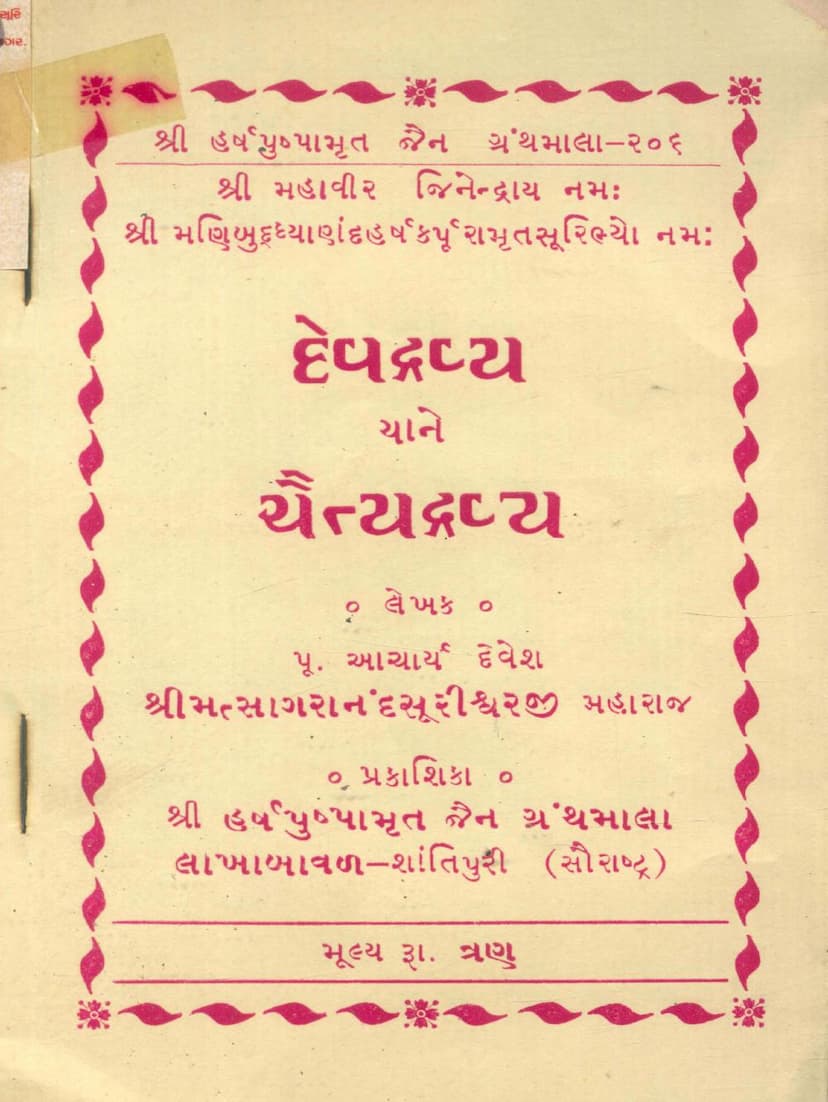 યરિ
ગર.
શ્રી હર્ષપુષ્પામૃત જૈન ગ્રંથમાલા–૨૦૬
શ્રી મહાવીર જિનેન્દ્રાય નમઃ
શ્રી મણિબુદ્ધ્યાણંદહર્ષકર્પૂરામૃતસૂરિભ્યો નમઃ
દેવદ્રવ્ય
યાને
ચૈત્યદ્રવ્ય
૦ લેખક ૦
પૂ. આચાર્ય દેવેશ
શ્રીમત્સાગરાનંદસૂરીશ્વરજી મહારાજ
૦ પ્રકાશિકા ૦
શ્રી હર્ષપુષ્પામૃત જૈન ગ્રંથમાલા
લાખાબાવળ–શાંતિપુરી (સૌરાષ્ટ્ર)
મૂલ્ય રૂા. ત્રણ